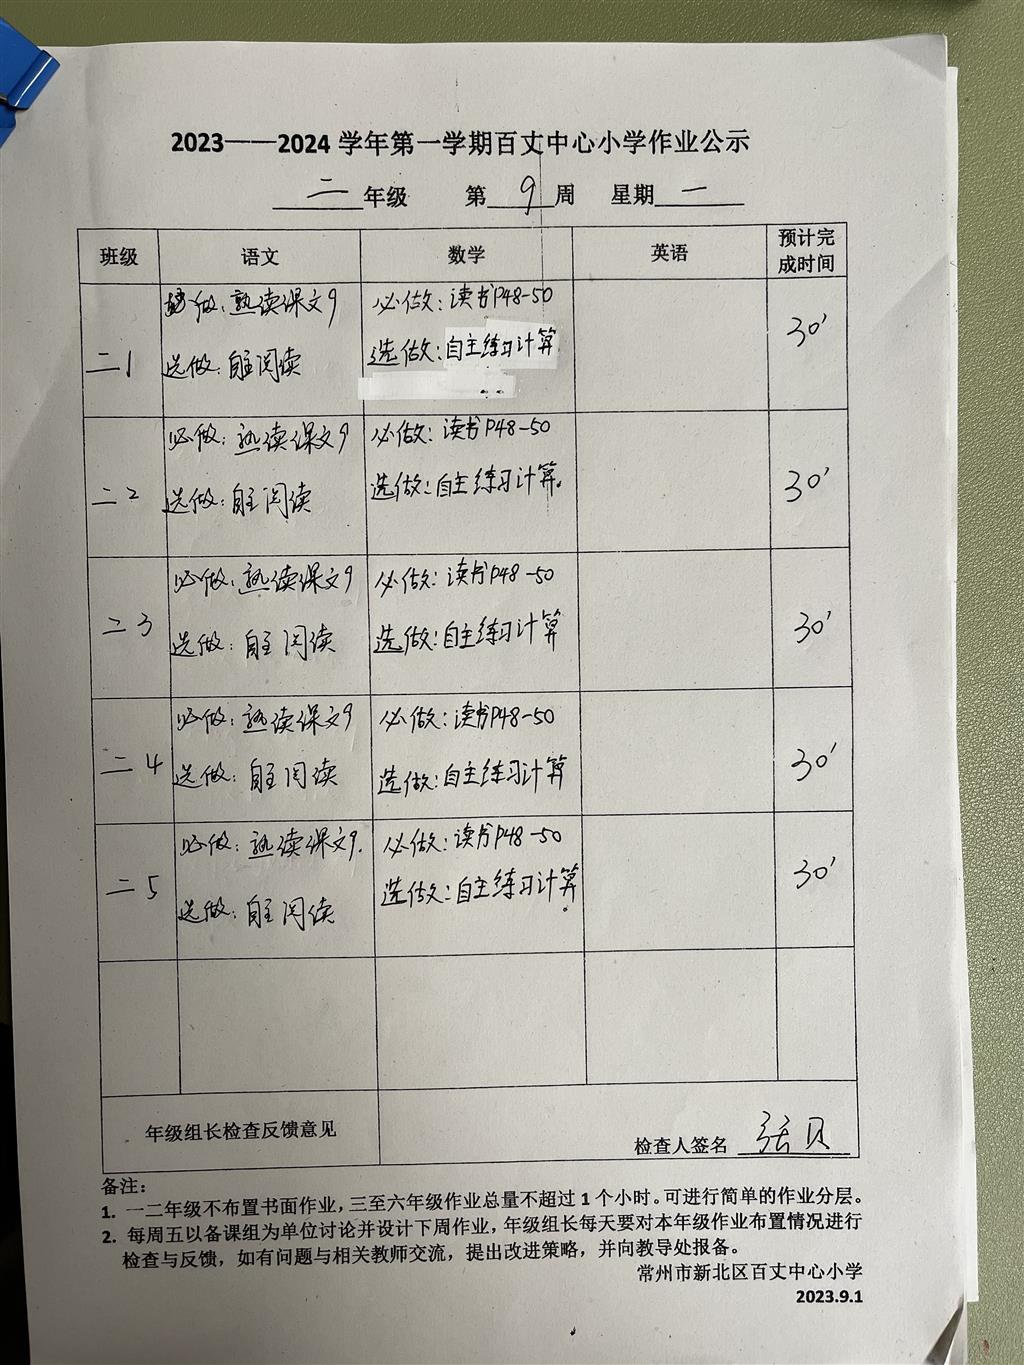 2023——2024 学年第一学期百丈中心小学作业公示
二 年级 第 9 周 星期 一
班级 语文 数学 英语 预计完成时间
必做：熟读课文9 必做：读书P48-50
二1 选做：自主阅读 选做：自主练习计算 30'
必做：熟读课文9 必做：读书P48-50
二2 选做：自主阅读 选做：自主练习计算. 30'
必做：熟读课文9 必做：读书P48-50
二3 选做：自主阅读 选做：自主练习计算 30'
必做：熟读课文9 必做：读书P48-50
二4 选做：自主阅读 选做：自主练习计算 30'
必做：熟读课文9. 必做：读书P48-50
二5 选做：自主阅读 选做：自主练习计算. 30'
年级组长检查反馈意见 检查人签名 张贝
备注：
1. 一二年级不布置书面作业，三至六年级作业总量不超过 1 个小时。可进行简单的作业分层。
2. 每周五以备课组为单位讨论并设计下周作业，年级组长每天要对本年级作业布置情况进行
检查与反馈，如有问题与相关教师交流，提出改进策略，并向教导处报备。
常州市新北区百丈中心小学
2023.9.1